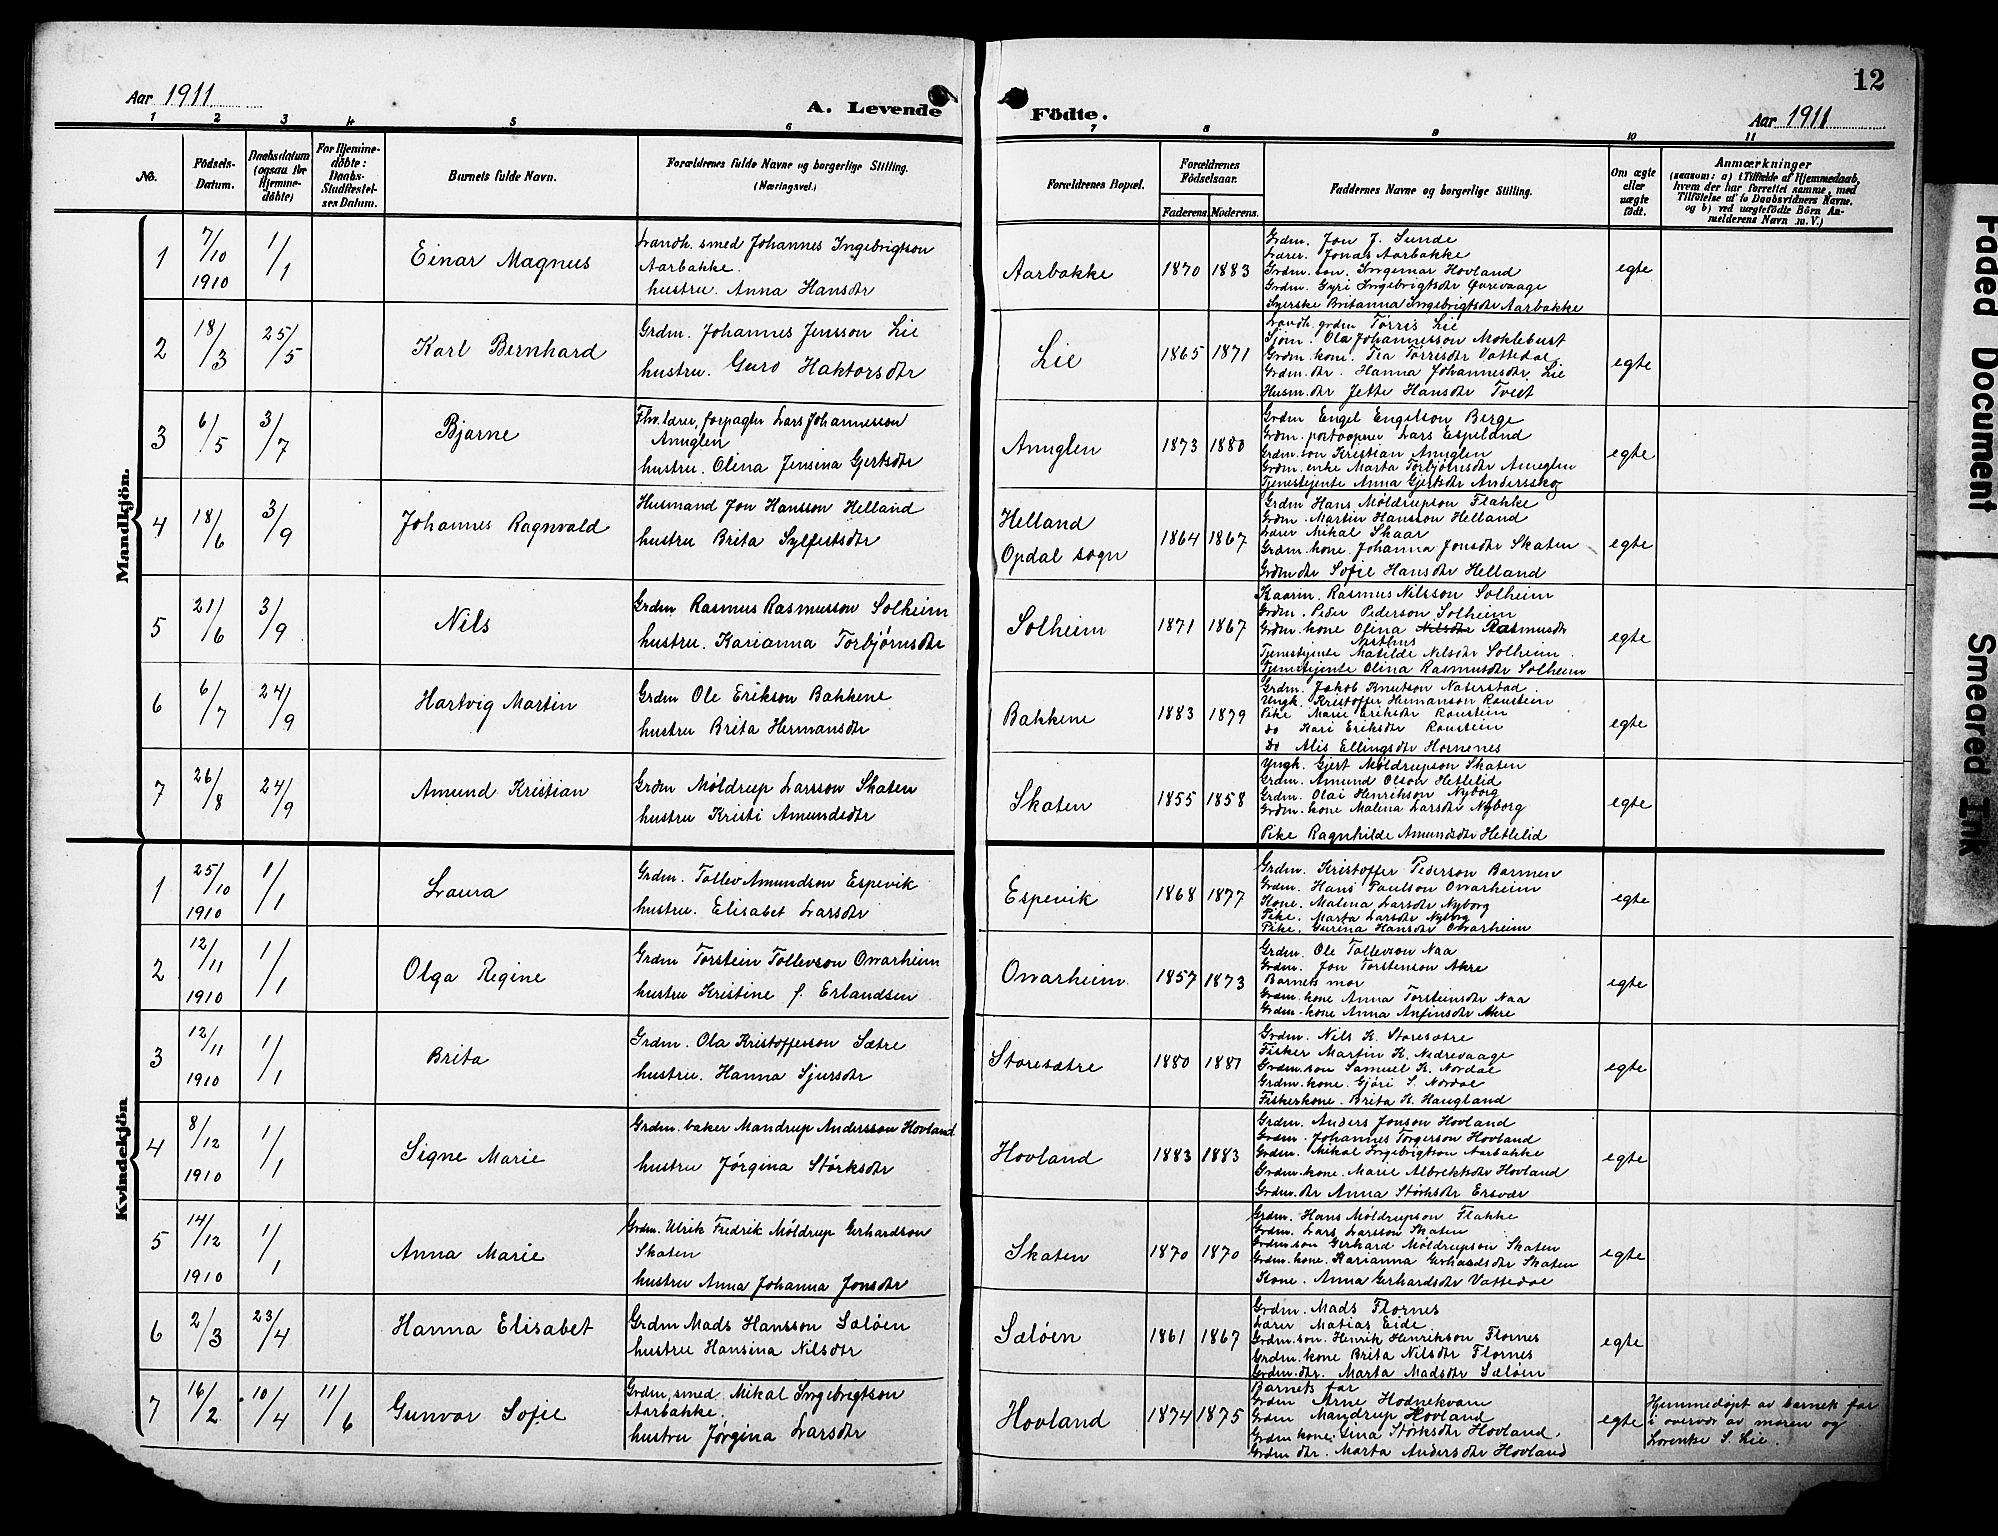 Aar 1911
A. Levende Födte.
12
Aar 1911
1 2 3 4 5 6 7 8 9 10 11
No.
Födsels-
Datum.
Daabsdatum
(ogsaa for
Hjemme-
döbte)
For Hjemme-
döbte:
Daabs-
Stadfæstel-
ses Datum.
Barnets fulde Navn.
Forældrenes fulde Navne og borgerlige Stilling.
(Næringsvei.)
Forældrenes Bopæl.
Forældrenes
Födselsaar.
Faderens. Moderens.
Faddernes Navne og borgerlige Stilling.
Om ægte
eller
uægte
födt.
Anmærkninger
(saasom: a) i Tilfælde af Hjemmedaab,
hvem der har forrettet samme, med
Tilföielse af to Daabsvidners Navne,
og b) ved uægtefödte Börn An-
melderens Navn m. V.)
Mandkjön.
1
7/10
1910
1/1
Einar Magnus
Landh. smed Johannes Ingebrigtson
Aarbakke.
hustru. Anna Hansdtr
Aarbakke
1870 1883
Grdm. Jon J. Sunde
Lærer. Jonas Aarbakke
Grdm. son. Ingemar Hovland
Grdm. Gyri Ingebrigtsdtr Övrevaage
Syerske Britanna Ingebrigtsdtr Aarbakke
egte
2
18/3
25/5
Karl Bernhard
Grdm. Johannes Jensson Lie
hustru. Guro Haktorsdtr
Lie
1865 1871
Landh. grdm Tørris Lie
Sjøm. Ola Johannesson Møklebust
Grdm. kone. Tea Tørrisdtr Vattedal
Grdm. dtr. Hanna Johannesdtr Lie
Husm. dtr Jette Hansdtr Tveit
egte
3
6/5
3/7
Bjarne
Fhv. lærer, forpagter Lars Johannesson
Anuglen
hustru. Olina Jensina Gjertsdtr
Anuglen
1873 1880
Grdm Engel Engelson Berge
Grdm. postaapner Lars Espeland
Grdm. son Kristian Anuglen
Grdm. enke Marta Torbjørnsdtr Anuglen
Tjenestjente Anna Gjertsdtr Andersskog
egte
4
18/6
3/9
Johannes Ragnvald
Husmand Jon Hansson Helland
hustru Brita Sylfestsdtr
Helland
Opdal sogn
1864 1867
Grdm Hans Møldrupson Flakke
Grdm. Martin Hansson Helland
Lærer Mikal Skaar
Grdm. kone. Johanna Jonsdtr Skaten
Grdm dtr Sofie Hansdtr Helland
egte
5
21/6
3/9
Nils
Grdm Rasmus Rasmusson Solheim
hustru. Karianna Torbjørnsdtr
Solheim
1871 1867
Kaarm. Rasmus Nilsson Solheim
Grdm. Peder Pederson Solheim
Grdm. kone Olina Nilsdtr Rasmusdtr
Nesthus
Tjenestjente Matilde Nilsdtr Solheim.
Tjenestjente Olina Rasmusdtr Solheim
egte
6
6/7
24/9
Hartvig Martin
Grdm Ole Erikson Bakkene
hustru Brita Hermansdtr
Bakkene
1883 1879
Grdm. Jakob Knutson Naterstad.
Ungk. Kristoffer Hermanson Raustein
Pike Marie Eriksdtr Raustein
Do Kari Eriksdtr Raustein
Do Alis Ellingsdtr Hornenes
egte
7
26/8
24/9
Amund Kristian
Grdm Møldrup Larsson Skaten
hustru Kristi Amundsdtr
Skaten
1855 1858
Yngk. Gjert Møldrupson Skaten
Grdm. Amund Olson Hetlelid
Grdm. Olai Henrikson Nyborg
Grdm. kone Malena Larsdtr Nyborg
Pike Ragnhilde Amundsdtr Hetlelid
egte
Kvindekjön
1
25/10
1910
1/1
Laura
Grdm. Tollev Amundson Espevik
hustru. Elisabet Larsdtr
Espevik
1868 1877
Grdm. Kristoffer Pederson Barmen
Grdm. Hans Paulson Onarheim
Kone. Malena Larsdtr Nyborg
Pike. Marta Larsdtr Nyborg
Pike. Gurina Hansdtr Onarheim
egte
2
12/11
1910
1/1
Olga Regine
Grdm Torstein Tollevson Onarheim
hustru Kristine f. Erlandsen
Onarheim.
1857 1873
Grdm. Ole Tollevson Naa
Grdm. Jon Torstenson Akre
Barnets mor
Grdm. kone Anna Torsteinsdtr Naa
Grdm. kone Anna Anfinsdtr Akre
egte
3
12/11
1910
1/1
Brita
Grdm. Ola Kristofferson Sætre
hustru. Hanna Sjursdtr
Storesætre
1880 1881
Grdm. Nils K. Storesætre
Fisker Martin K. Nedrevaage
Grdm. son Samuel K. Nordal
Grdm. kone. Gjöri S. Nordal
Fiskerkone. Brita H. Haugland
egte
4
8/12
1910
1/1
Signe Marie
Grdm. baker Mandrup Andersson Hovland
hustru Jørgina Størksdtr
Hovland
1883 1883
Grdm. Anders Jonson Hovland
Grdm. Johannes Torgerson Hovland
Grdm. Mikal Ingebrigtson Aarbakke
Grdm. kone. Marie Albrektsdtr Hovland
Grdm. dtr Anna Størksdtr Ersvær
egte
5
14/12
1910
1/1
Anna Marie
Grdm. Ulrik Fredrik Møldrup Gerhardson
Skaten
hustru Anna Johanna Jonsdtr
Skaten
1870 1870
Grdm. Hans Møldrupson Flakke
Grdm. Lars Larsson Skaten
Grdm. son Gerhard Møldrupson Skaten
Grdm. kone. Karianna Gerhardsdtr Skaten
Kone. Anna Gerhardsdtr Vattedal
egte
6
2/3
23/4
Hanna Elisabet
Grdm Mads Hansson Sæløen
hustru Hansina Nilsdtr
Sæløen
1861 1867
Grdm. Mads Flornes
Lærer Matias Eide
Grdm. son. Henrik Henrikson Flornes
Grdm. kone Brita Nilsdtr Flornes
Grdm. dtr. Marta Madsdtr Sæløen
egte
7
16/2
10/4
11/6
Gunvor Sofie
Grdm, smed. Mikal Ingebrigtson
Aarbakke.
hustru Jørgina Larsdtr
Hovland
1874 1875
Barnets far
Grdm Arne Hodnekvam
Grdm Mandrup Hovland
Grdm kone. Gina Størksdtr Hovland.
Grdm dtr. Marta Andersdtr Hovland
egte
Hjemmedøpt av barnets far
i overvær av moren og
Lorentse S. Lie.
Faded Document
Smeared Ink